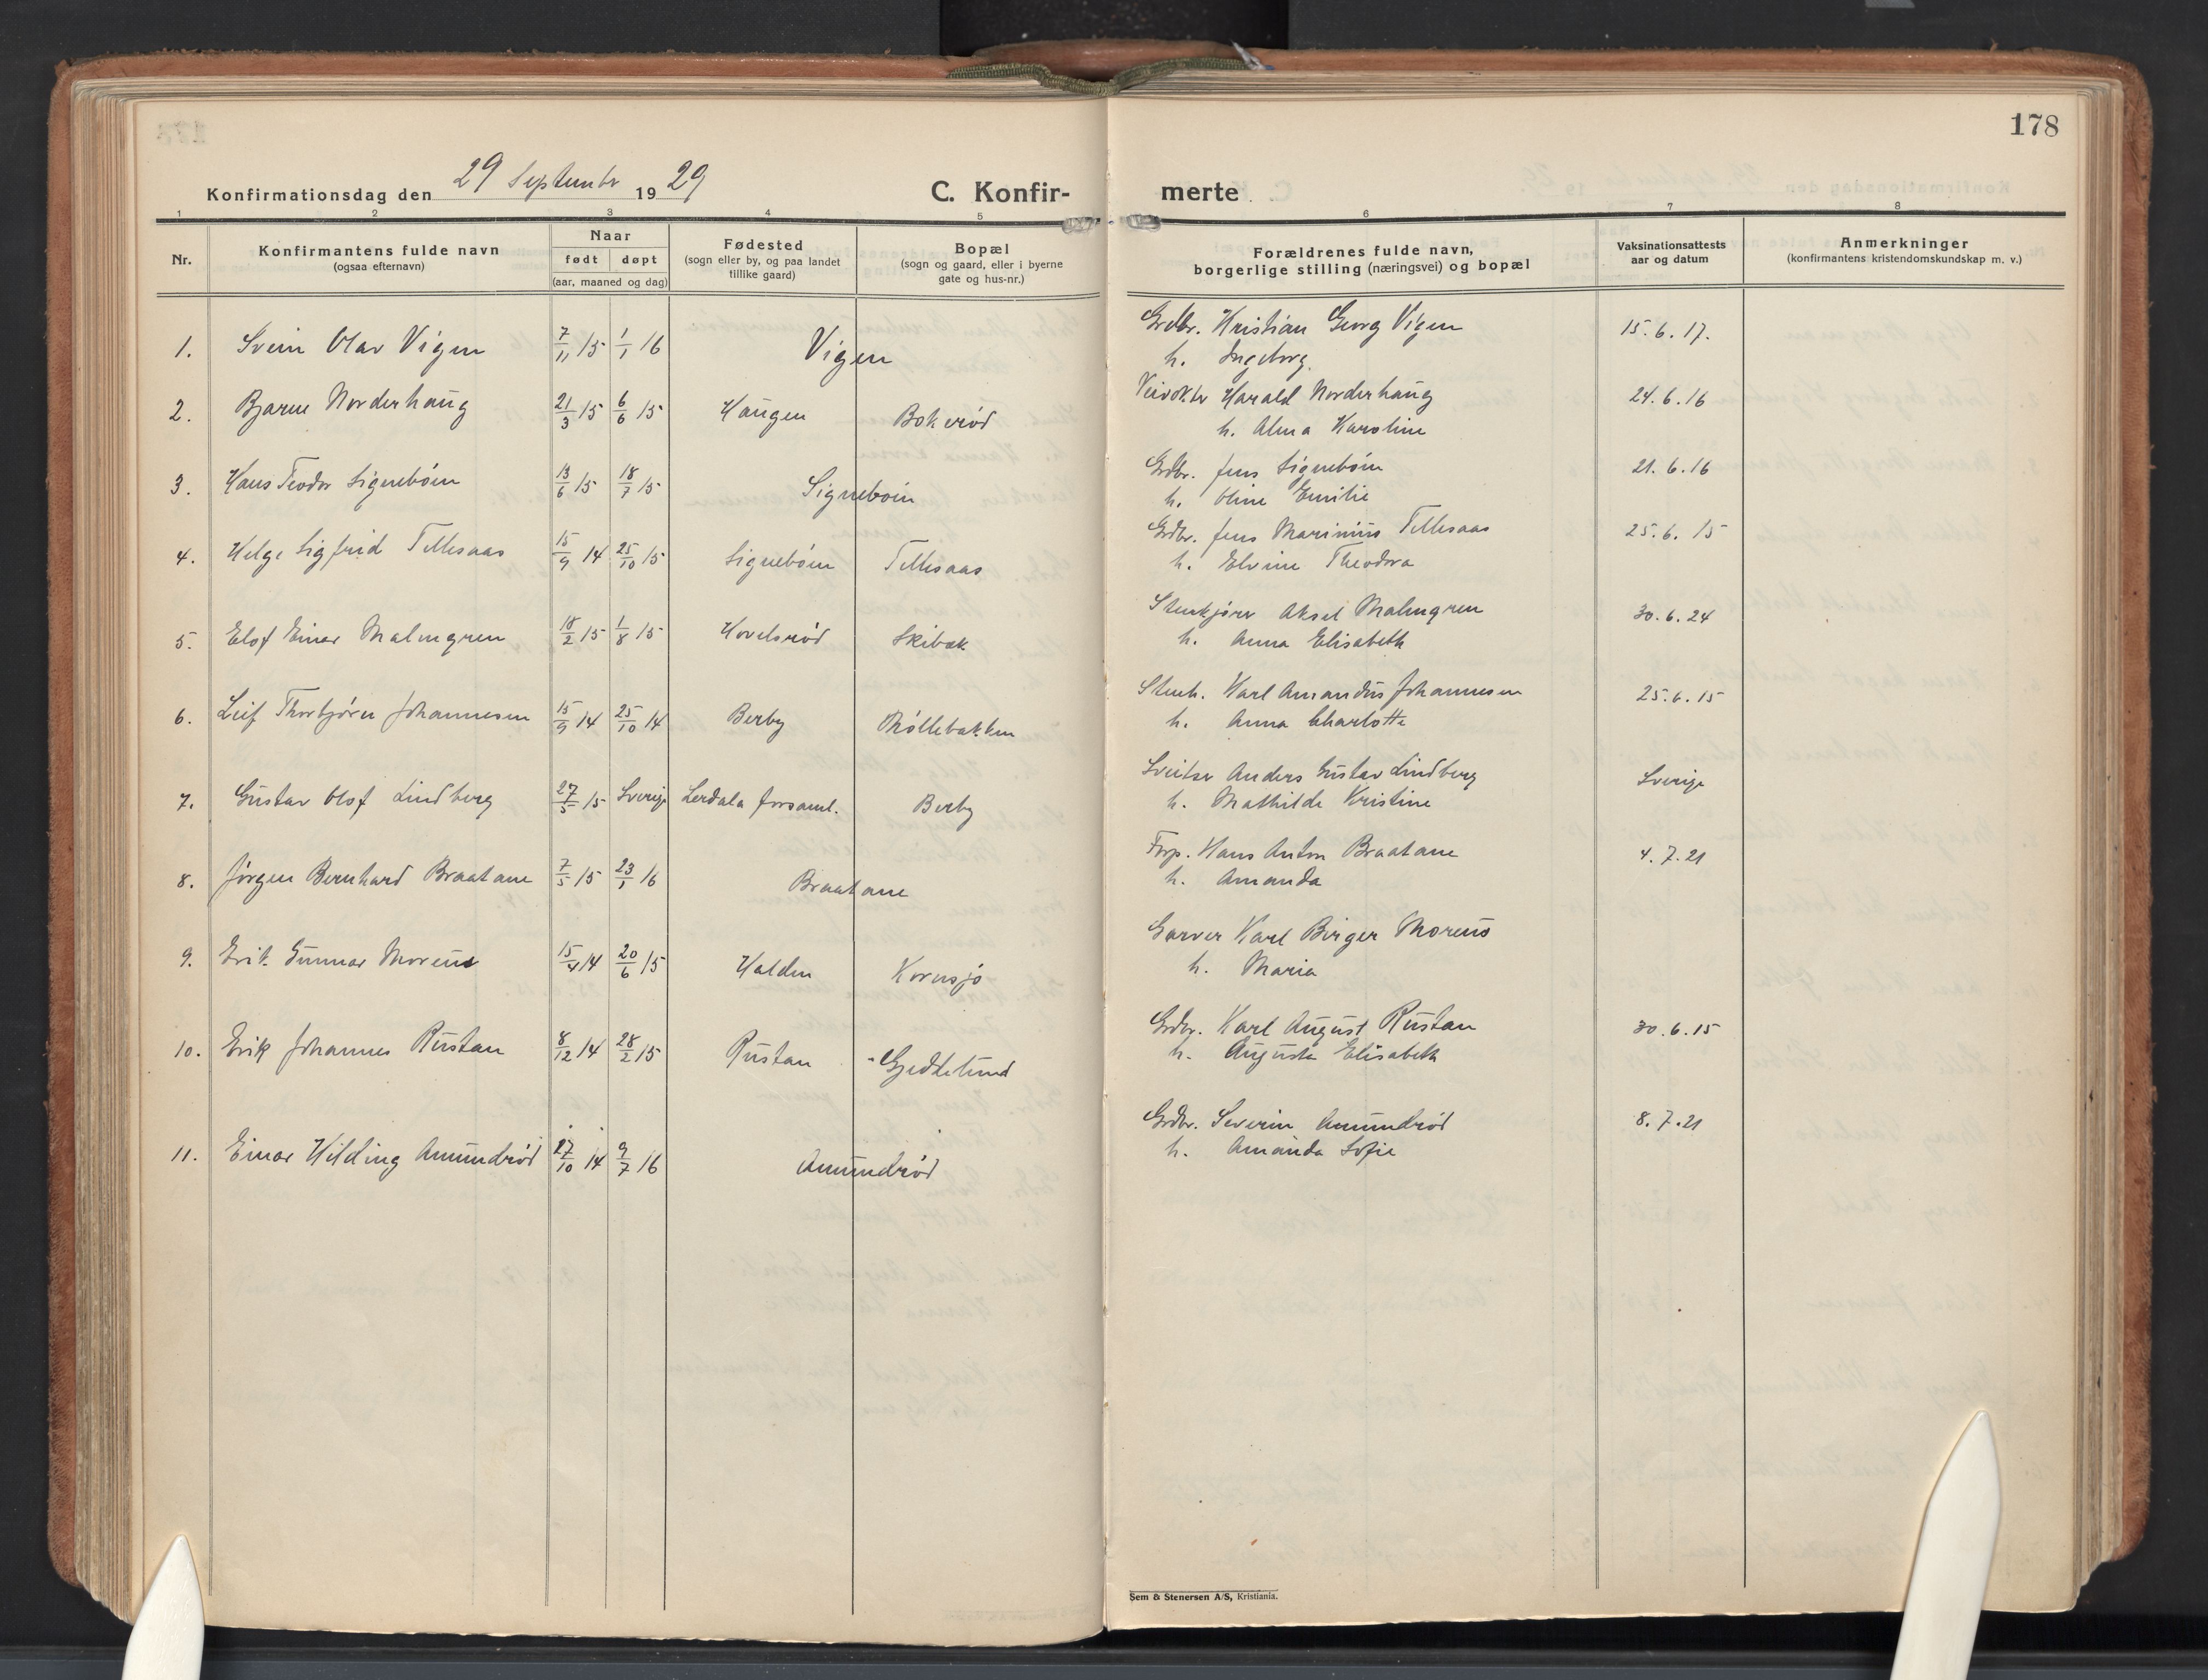 178
Konfirmationsdag den 29 September 1929
C. Konfir-merte
1 2 3 4 5 6 7 8
Nr.
Konfirmantens fulde navn
(ogsaa efternavn)
Naar
født døpt
(aar, maaned og dag)
Fødested
(sogn eller by, og paa landet
tillike gaard)
Bopæl
(sogn og gaard, eller i byerne
gate og hus-nr.)
Forældrenes fulde navn,
borgerlige stilling (næringsvei) og bopæl
Vaksinationsattests
aar og datum
Anmerkninger
(konfirmantens kristendomskundskap m. v.)
1. Svein Olav Vigen 7/11 15 1/1 16 Vigen Grdbr. Kristian Georg Vigen 15.6.17.
h. Ingeborg.
2. Bjarne Norderhaug 21/3 15 6/6 15 Haugen Bokerød Veivokter Harald Norderhaug 24.6.16
h. Alma Karoline
3. Hans Teodor Signebøen 13/6 15 18/7 15 Signebøen Grdbr. Jens Signebøen 21.6.16
h. Oline Emilie
4. Helge Sigfrid Tillesaas 15/9 14 25/10 15 Signebøen Tillesaas Grdbr. Jens Marinius Tillesaas 25.6.15
h. Elvine Theodora
5. Elof Einar Malmgren 18/2 15 1/8 15 Hovelsrød Skibæk Stenkjører Aksel Malmgren 30.6.24
h. Anna Elisabeth
6. Leif Thorbjørn Johannesen 15/9 14 25/10 14 Berby Møllebakken Stenh. Karl Amandus Johannesen 25.6.15
h. Anna Charlotte
7. Gustav Olof Lindberg 27/5 15 Sverige Lerdala forsaml. Berby Sveitser Anders Gustav Lindberg Sverige
h. Mathilde Kristine
8. Jørgen Bernhard Braatane 7/5 15 23/1 16 Braatane Forp. Hans Anton Braatane 4.7.21
h. Amanda
9. Erik Gunnar Moreus 15/4 14 20/6 15 Halden Kornsjø Garver Karl Birger Moreus
h. Maria
10. Erik Johannes Rustan 8/12 14 28/2 15 Rustan Gjeddelund Grdbr. Karl August Rustan 30.6.15
h. Augusta Elisabeth
11. Einar Hilding Amundrød 27/10 14 9/7 16 Amundrød Grdbr. Severin Amundrød 8.7.21
h. Amanda Sofie
Sem & Stenersen A/S, Kristiania.